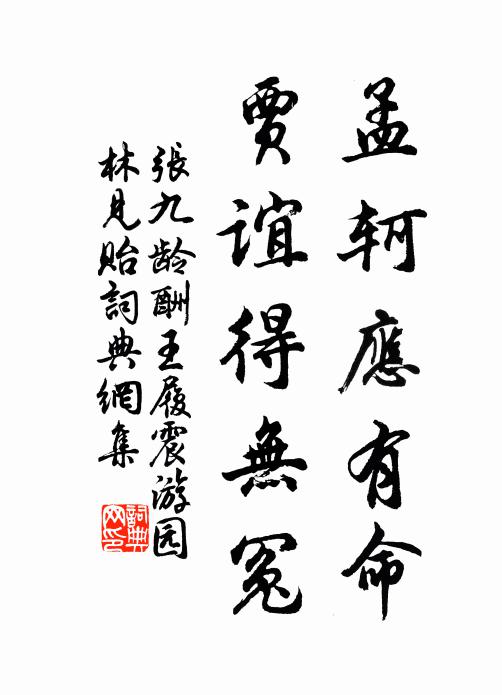 孟軻應有命
賈誼得無冤
張九龄酬王履震游园
林見贻詞典網集
詞典
网印